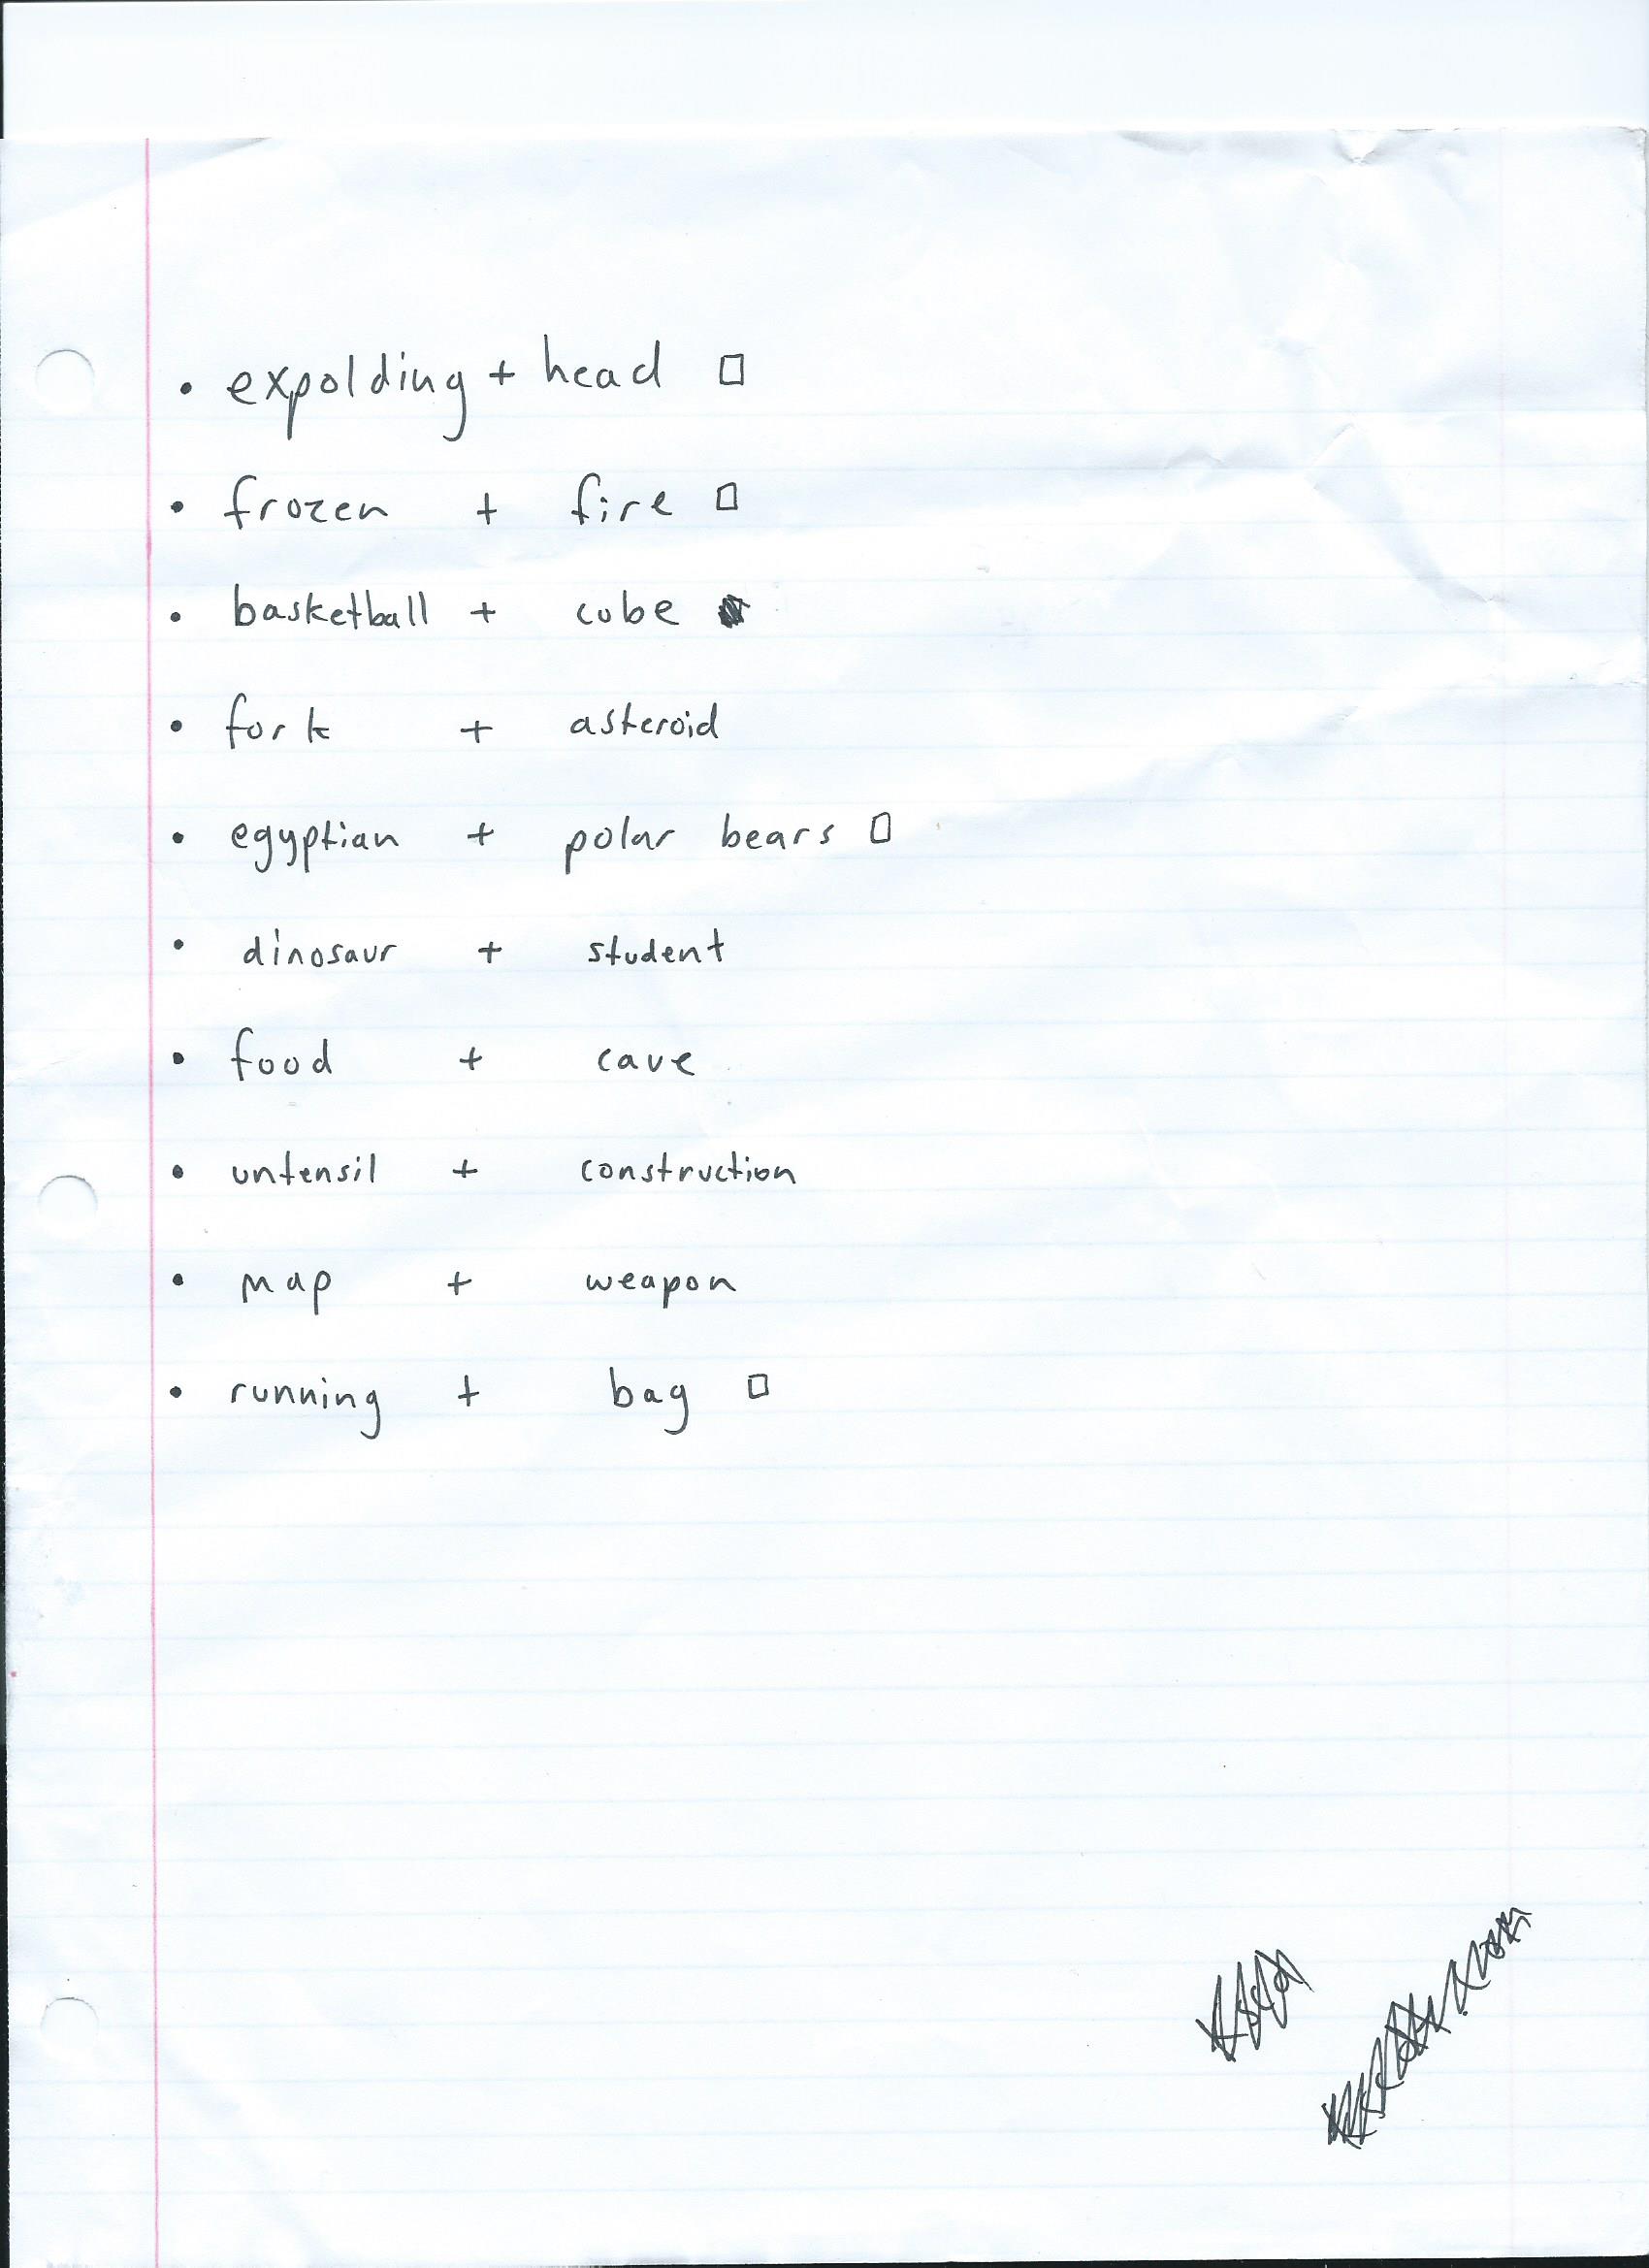 • expolding + head □
• frozen + fire □
• basketball + cube
• fork + asteroid
• egyptian + polar bears □
• dinosaur + student
• food + cave
• untensil + construction
• map + weapon
• running + bag □